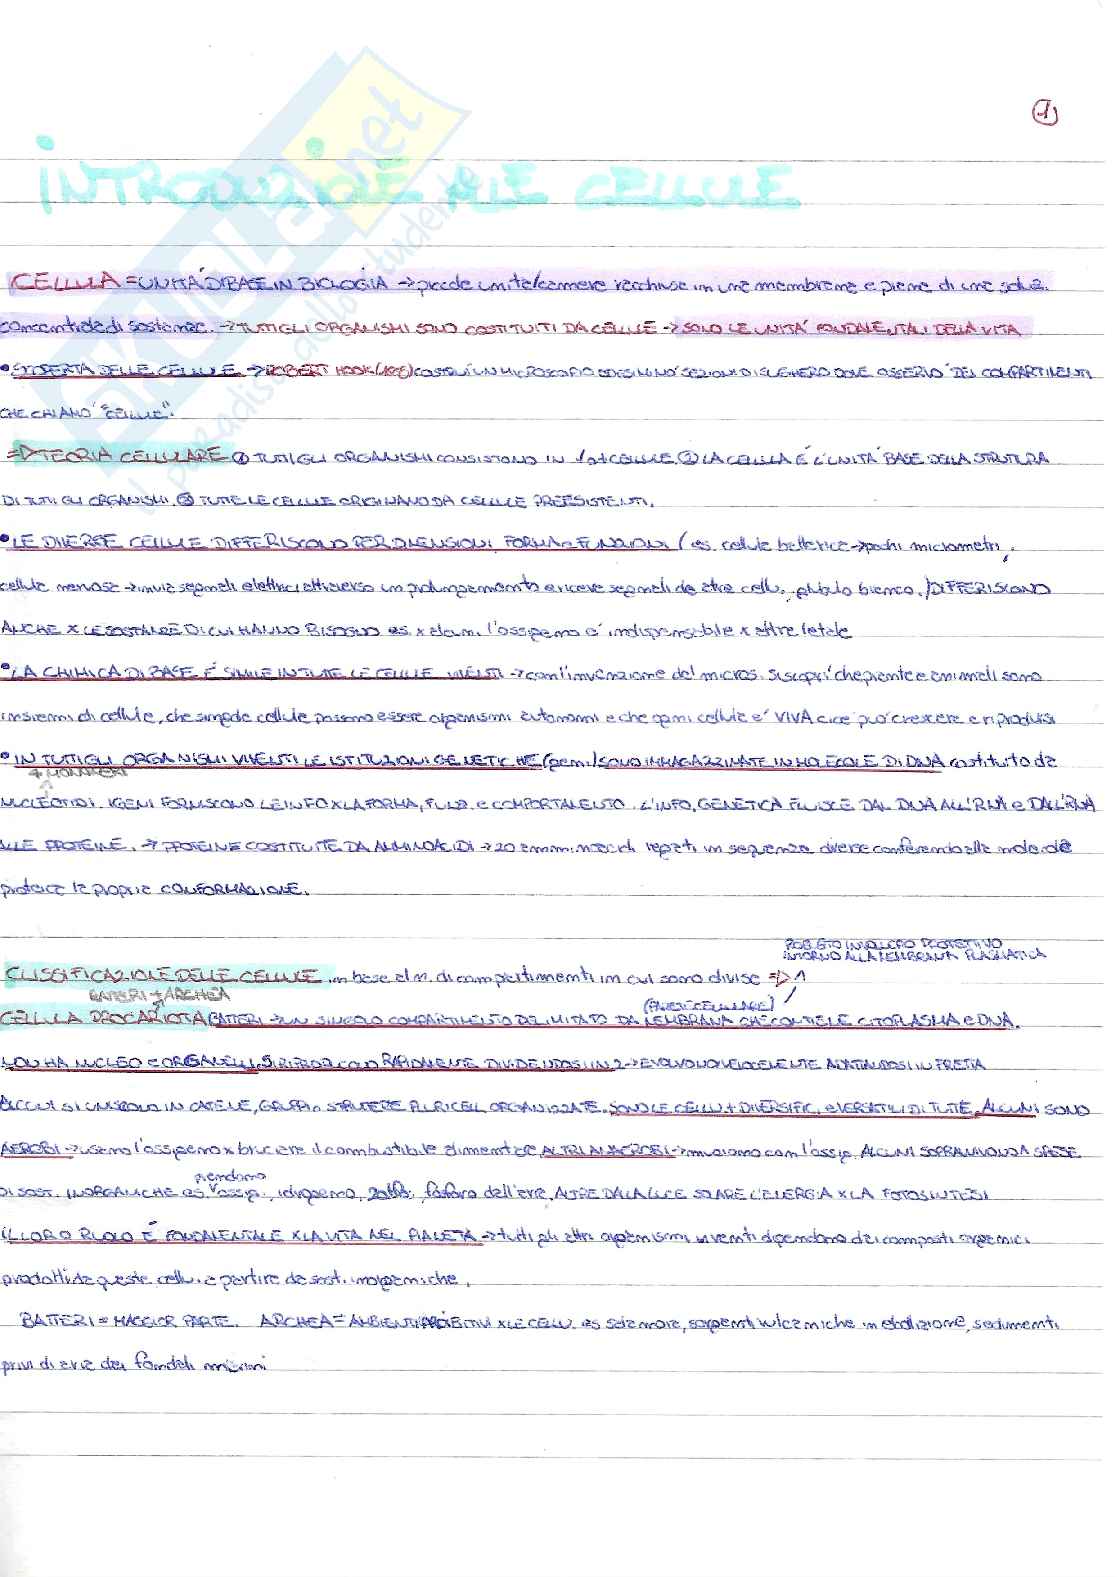 1
INTRODUZIONE ALLE CELLULE
SKUOLA.net
il paradiso dello studente
CELLULA = UNITÀ DI BASE IN BIOLOGIA → piccole unità/camere racchiuse in una membrana e piene di una soluz.
concentrata di sostanze. → TUTTI GLI ORGANISMI SONO COSTITUITI DA CELLULE → SONO LE UNITÀ FONDAMENTALI DELLA VITA
• SCOPERTA DELLE CELLULE → ROBERT HOOK COSTRUÌ UN MICROSCOPIO ED ESAMINÒ SEZIONI DI SUGHERO DOVE OSSERVÒ DEI COMPARTIMENTI
CHE CHIAMÒ "CELLULE".
⇒ TEORIA CELLULARE ① TUTTI GLI ORGANISMI CONSISTONO IN 1 o + CELLULE ② LA CELLULA È L'UNITÀ BASE DELLA STRUTTURA
DI TUTTI GLI ORGANISMI. ③ TUTTE LE CELLULE ORIGINANO DA CELLULE PREESISTENTI.
• LE DIVERSE CELLULE DIFFERISCONO PER DIMENSIONI, FORMA e FUNZIONI (es. cellula batterica → pochi micrometri,
cellula nervosa → invia segnali elettrici attraverso un prolungamento e riceve segnali da altre cellu. globulo bianco.) DIFFERISCONO
ANCHE X LE SOSTANZE DI CUI HANNO BISOGNO es. x alcuni l'ossigeno è indispensabile x altre letale
• LA CHIMICA DI BASE È SIMILE IN TUTTE LE CELLULE VIVENTI → con l'invenzione del micros. si scoprì che piante e animali sono
insiemi di cellule, che singole cellule possono essere organismi autonomi e che ogni cellula è VIVA cioè può crescere e riprodursi
• IN TUTTI GLI ORGANISMI VIVENTI LE ISTITUZIONI GENETICHE (geni) SONO IMMAGAZZINATE IN MOLECOLE DI DNA costituito da
+ MONOMERI
NUCLEOTIDI. I GENI FORNISCONO LE INFO X LA FORMA, FUNZ. e COMPORTAMENTO. L'INFO. GENETICA FLUISCE DAL DNA ALL'RNA e DALL'RNA
ALLE PROTEINE. → PROTEINE COSTITUITE DA AMMINOACIDI → 20 amminoacidi ripetuti in sequenza diverse conferendo alla molecola
proteica la propria CONFORMAZIONE.
POSSIEDO INVOLUCRO PROTETTIVO
INTORNO ALLA MEMBRANA PLASMATICA
CLASSIFICAZIONE DELLE CELLULE in base al n. di compartimenti in cui sono divise ⇒ 1
BATTERI + ARCHEA
(PARETE CELLULARE)
CELLULA PROCARIOTA (BATTERI → UN SINGOLO COMPARTIMENTO DELIMITATO DA MEMBRANA CHE CONTIENE CITOPLASMA e DNA.
NON HA NUCLEO e ORGANELLI. SI RIPRODUCONO RAPIDAMENTE DIVIDENDOSI IN 2 → EVOLVONO VELOCEMENTE ADATTANDOSI IN FRETTA
ALCUNI SI UNISCONO IN CATENE, GRUPPI o STRUTTURE PLURICELL. ORGANIZZATE. SONO LE CELLU + DIVERSIFIC. e VERSATILI DI TUTTE. ALCUNI SONO
AEROBI → usano l'ossigeno x bruciare il combustibile alimentare, ALTRI ANAEROBI → muoiono con l'ossig. ALCUNI SOPRAVVIVONO A SPESE
prendono
DI SOST. INORGANICHE es. ossig., idrogeno, zolfo, fosforo dell'aria, ALTRE DALLA LUCE SOLARE L'ENERGIA X LA FOTOSINTESI
IL LORO RUOLO È FONDAMENTALE X LA VITA NEL PIANETA → tutti gli altri organismi viventi dipendono dai composti organici
prodotti da queste cellu. a partire da sost. inorganiche.
BATTERI = MAGGIOR PARTE. ARCHEA = AMBIENTI PROIBITIVI X LE CELLU. es. sale mare, sorgenti vulcaniche in ebollizione, sedimenti
privi di aria dei fondali marini